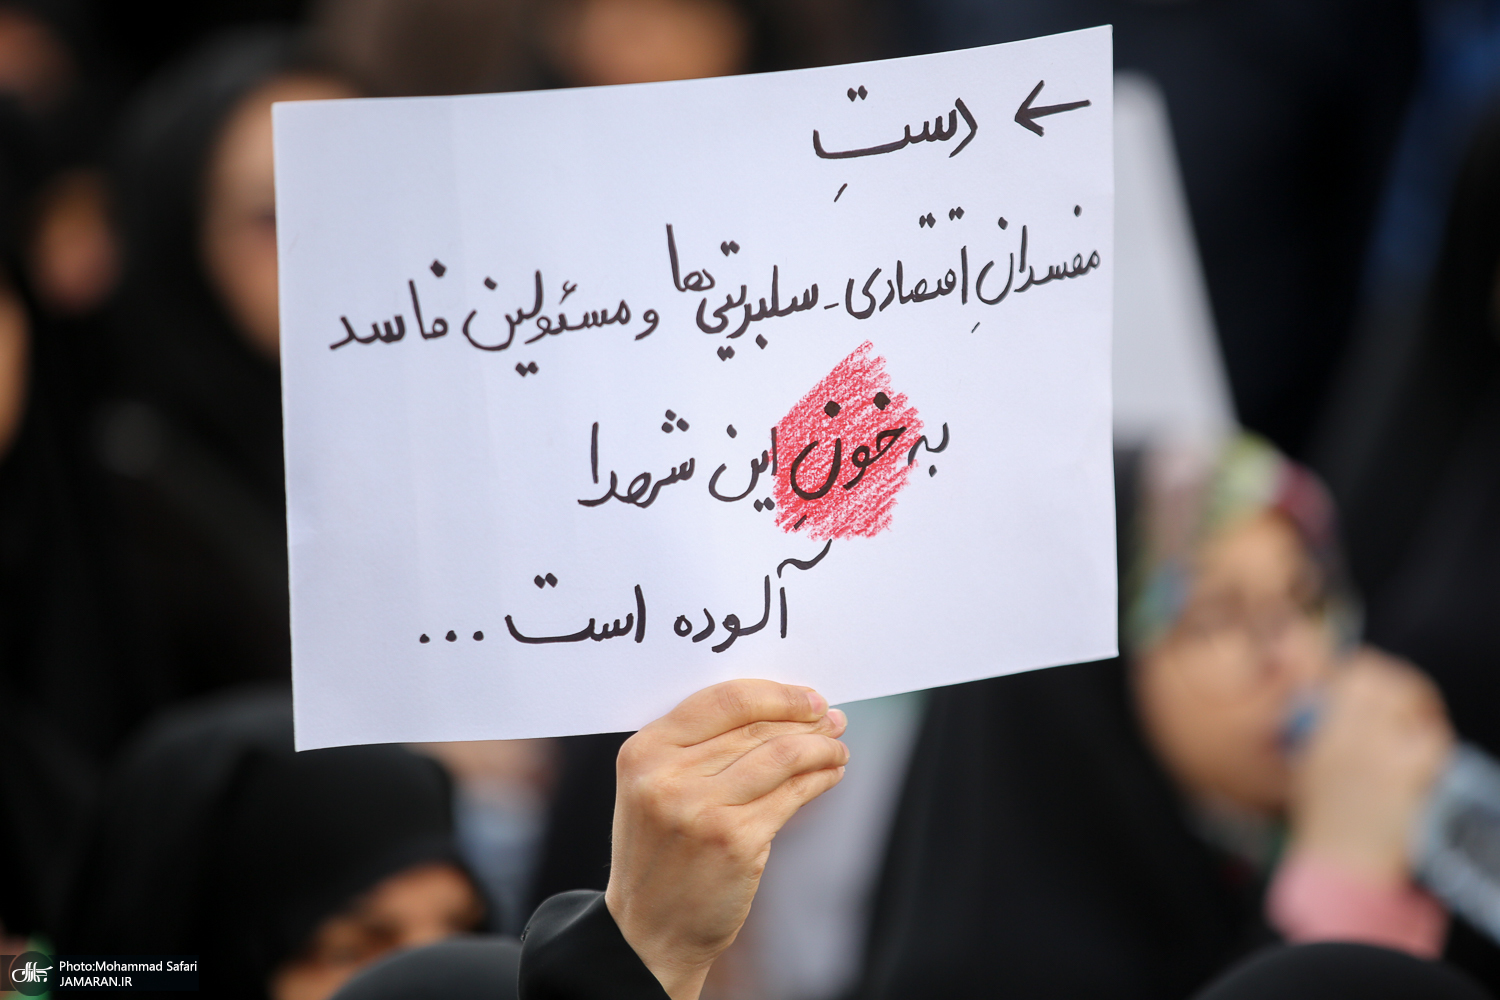 ← دستِ
مفسدانِ اِقتصادی - سلبریتی‌ها و مسئولین فاسد
به خونِ این شهدا
آلوده است ...
Photo:Mohammad Safari
JAMARAN.IR